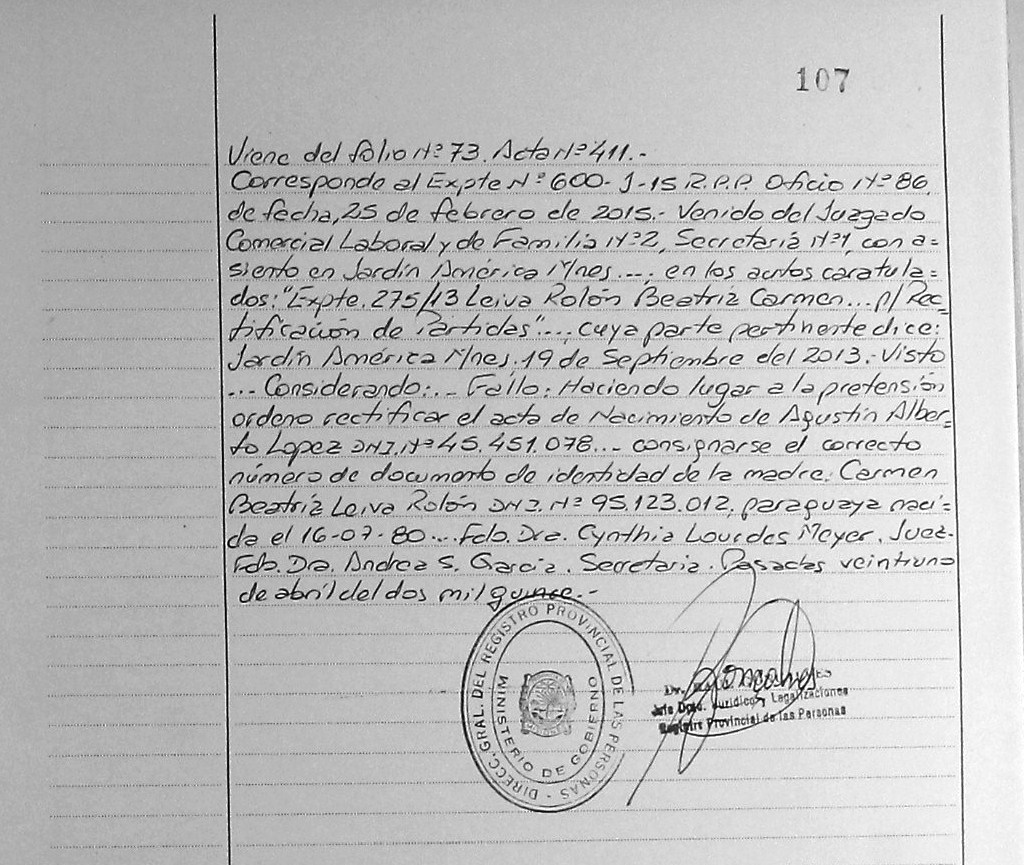 107
Viene del folio Nº 73. Acta Nº 411.-
Corresponde al Expte Nº 600- J-15 R.P.P. Oficio Nº 86,
de fecha, 25 de febrero de 2015.- Venido del Juzgado
Comercial Laboral y de Familia Nº 2, Secretaría Nº1, con a=
siento en Jardín América Mnes....; en los autos caratula=
dos: "Expte. 275/13 Leiva Rolón Beatriz Carmen... p/ Rec=
tificación de Partidas"..., cuya parte pertinente dice:
Jardín América Mnes. 19 de Septiembre del 2013.- Visto
... Considerando:... Fallo: Haciendo lugar a la pretensión
ordeno rectificar el acta de Nacimiento de Agustín Alber=
to Lopez DNI. Nº 45.451.078... consignarse el correcto
número de documento de identidad de la madre: Carmen
Beatríz Leiva Rolón DNI. Nº 95.123.012, paraguaya naci=
da el 16-07-80... Fdo. Dra. Cynthia Lourdes Meyer. Juez-
Fdo. Dra. Andrea S. Garcia. Secretaria. Posadas veintiuno
de abríl del dos mil quince.-
DIRECC. GRAL. DEL REGISTRO PROVINCIAL DE LAS PERSONAS -
MINISTERIO DE GOBIERNO
Dr.
Jefe Dpto. Jurídico y Legalizaciones
Registro Provincial de las Personas